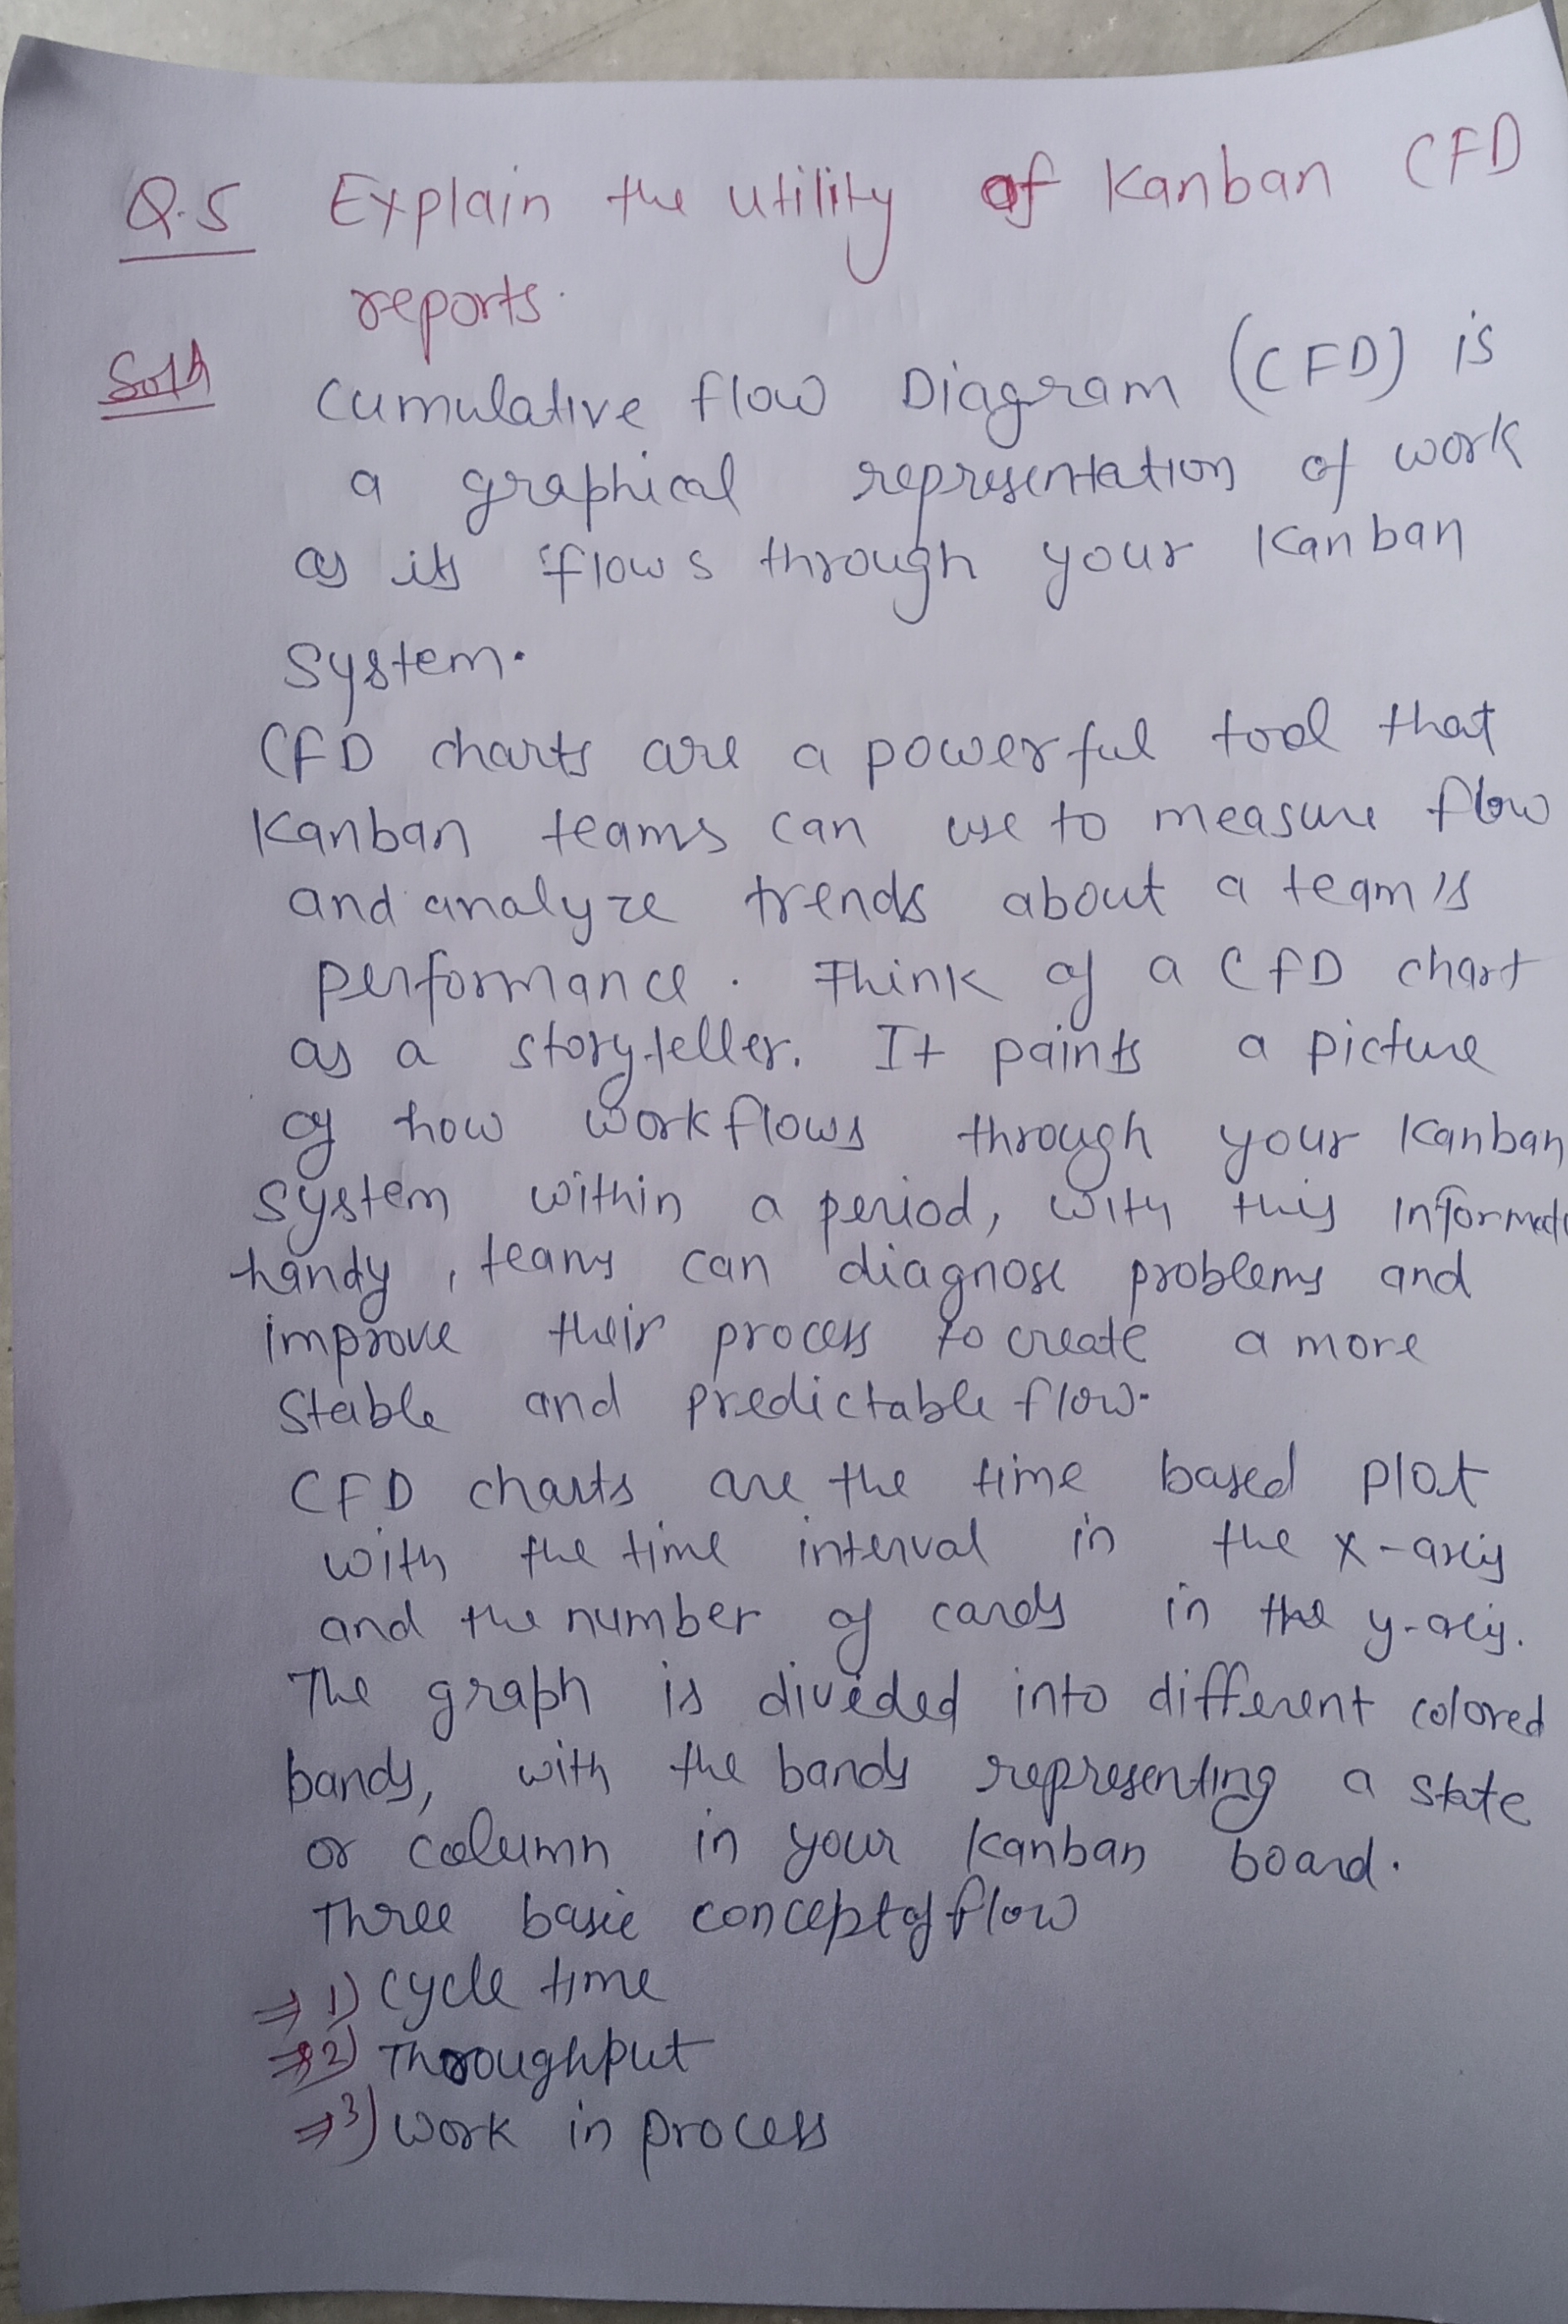 Q.5 Explain the utility of Kanban CFD
reports.
Soln
Cumulative flow Diagram (CFD) is
a graphical representation of work
as its flows through your Kanban
System.
CFD charts are a powerful tool that
Kanban teams can use to measure flow
and analyze trends about a team's
performance. Think of a CFD chart
as a storyteller. It paints a picture
of how workflows through your Kanban
System within a period, with this informati
handy, teams can diagnose problems and
improve their process to create a more
Stable and predictable flow.
CFD charts are the time based plot
with the time interval in the x-axis
and the number of cards in the y-axis.
The graph is divided into different colored
bands, with the bands representing a state
or column in your Kanban board.
Three basic concept of flow
⇒ 1) Cycle time
⇒ 2) Throughput
⇒ 3) Work in process